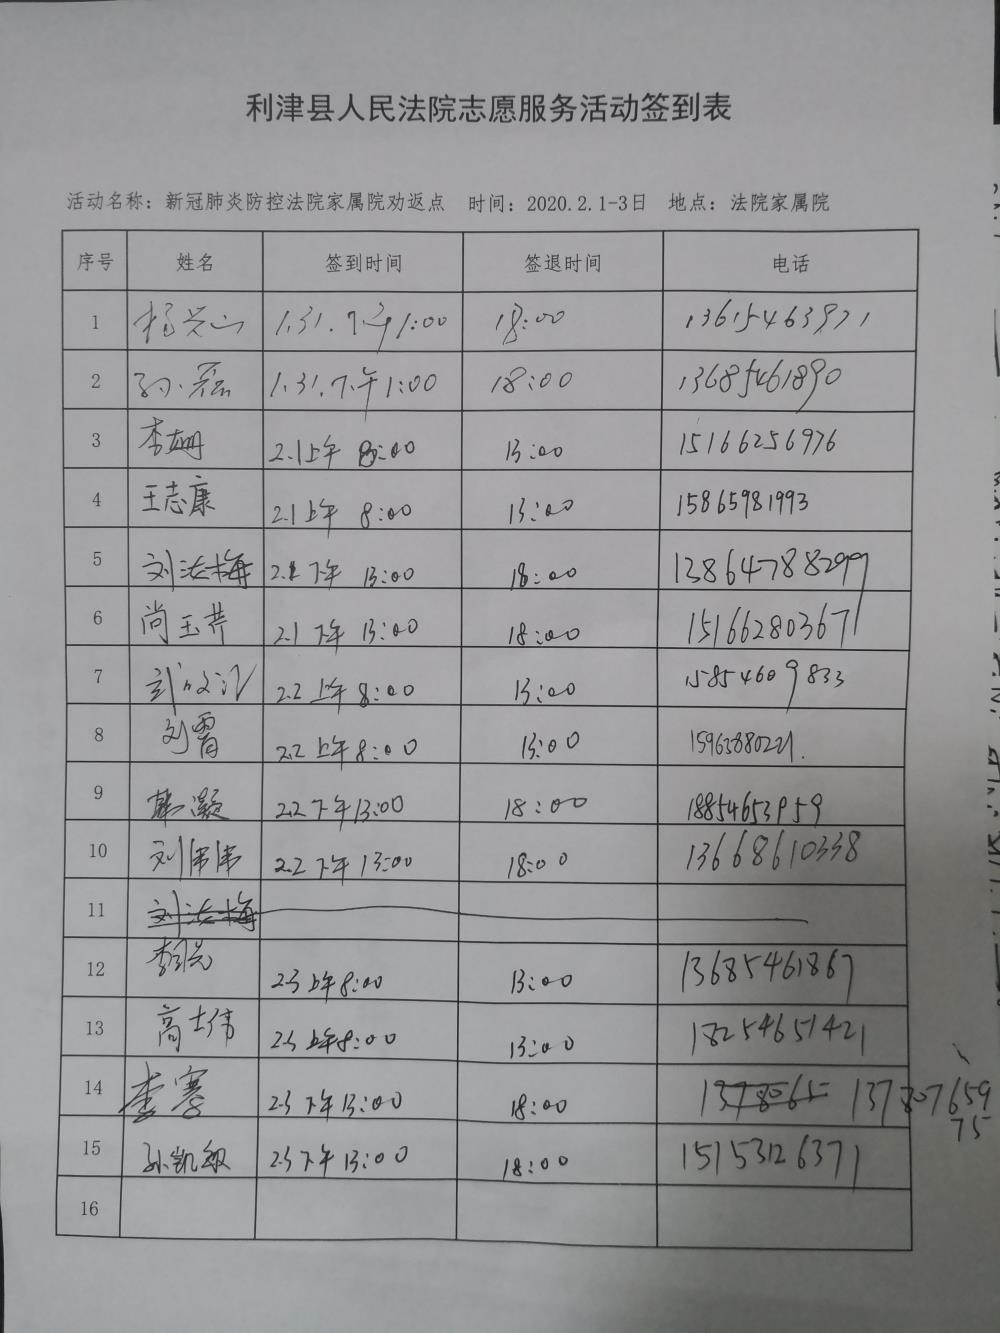 利津县人民法院志愿服务活动签到表
活动名称：新冠肺炎防控法院家属院劝返点 时间：2020.2.1-3日 地点：法院家属院
序号 姓名 签到时间 签退时间 电话
1 杨兴山 1.31.下午1:00 18:00 13615463971
2 孙磊 1.31.下午1:00 18:00 13685461890
3 李珊 2.1上午 8:00 13:00 15166256976
4 王志康 2.1上午 8:00 13:00 15865981993
5 刘法梅 2.1下午 13:00 18:00 13864788299
6 尚玉芹 2.1下午 13:00 18:00 15166280367
7 2.2上午8:00 13:00 15854609833
8 刘霄 2.2上午8:00 13:00 15963880221.
9 韩凝 2.2下午13:00 18:00 18854653959
10 刘伟伟 2.2下午13:00 18:00 13668610338
11 刘法梅
12 2.3上午8:00 13:00 13685461867
13 高士伟 2.3上午8:00 13:00 18254651421
14 李骞 2.3下午13:00 18:00 1378065 13780765975
15 孙凯敏 2.3下午13:00 18:00 15153126371
16